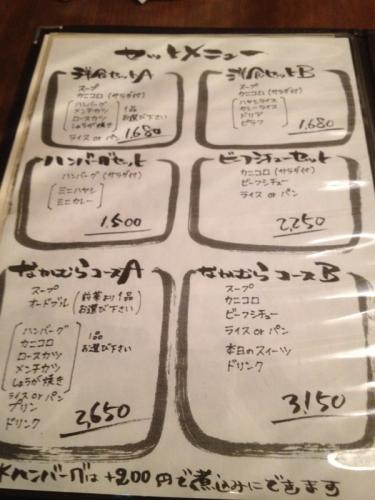 セットメニュー
洋食セットA
スープ
カニコロ (サラダ付)
ハンバーグ
メンチカツ
ロースカツ
しょうが焼き
1品
お選び下さい
ライス or パン
1,680
洋食セットB
スープ
カニコロ (サラダ付)
ハヤシライス
カレーライス
ドリア
ピラフ
1,680
ハンバーグセット
ハンバーグ (サラダ付)
ミニハヤシ
ミニカレー
1,500
ビーフシチューセット
カニコロ (サラダ付)
ビーフシチュー
ライス or パン
2,250
なかむらコースA
スープ
オードブル (前菜より1品
お選び下さい)
ハンバーグ
カニコロ
ロースカツ
メンチカツ
しょうが焼き
1品
お選び下さい
ライス or パン
プリン
ドリンク
2,650
なかむらコースB
スープ
カニコロ
ビーフシチュー
ライス or パン
本日のスイーツ
ドリンク
3,150
※ハンバーグは+200円で煮込みにできます